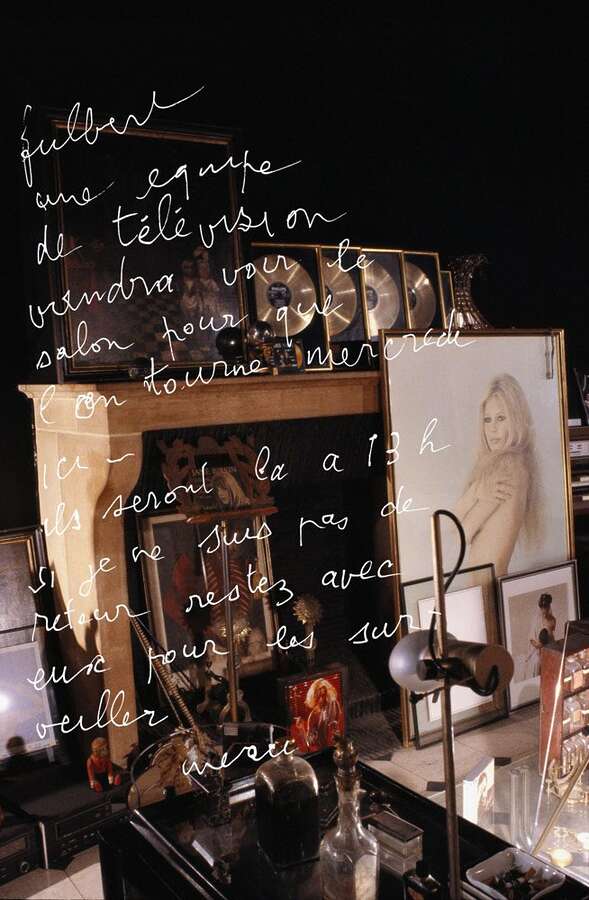 fulbert
une equipe
de télévision
viendra voir le
salon pour que
l'on tourne mercredi
ici –
ils seront la a 13 h
si je ne suis pas de
retour restez avec
eux pour les sur-
veiller
merci